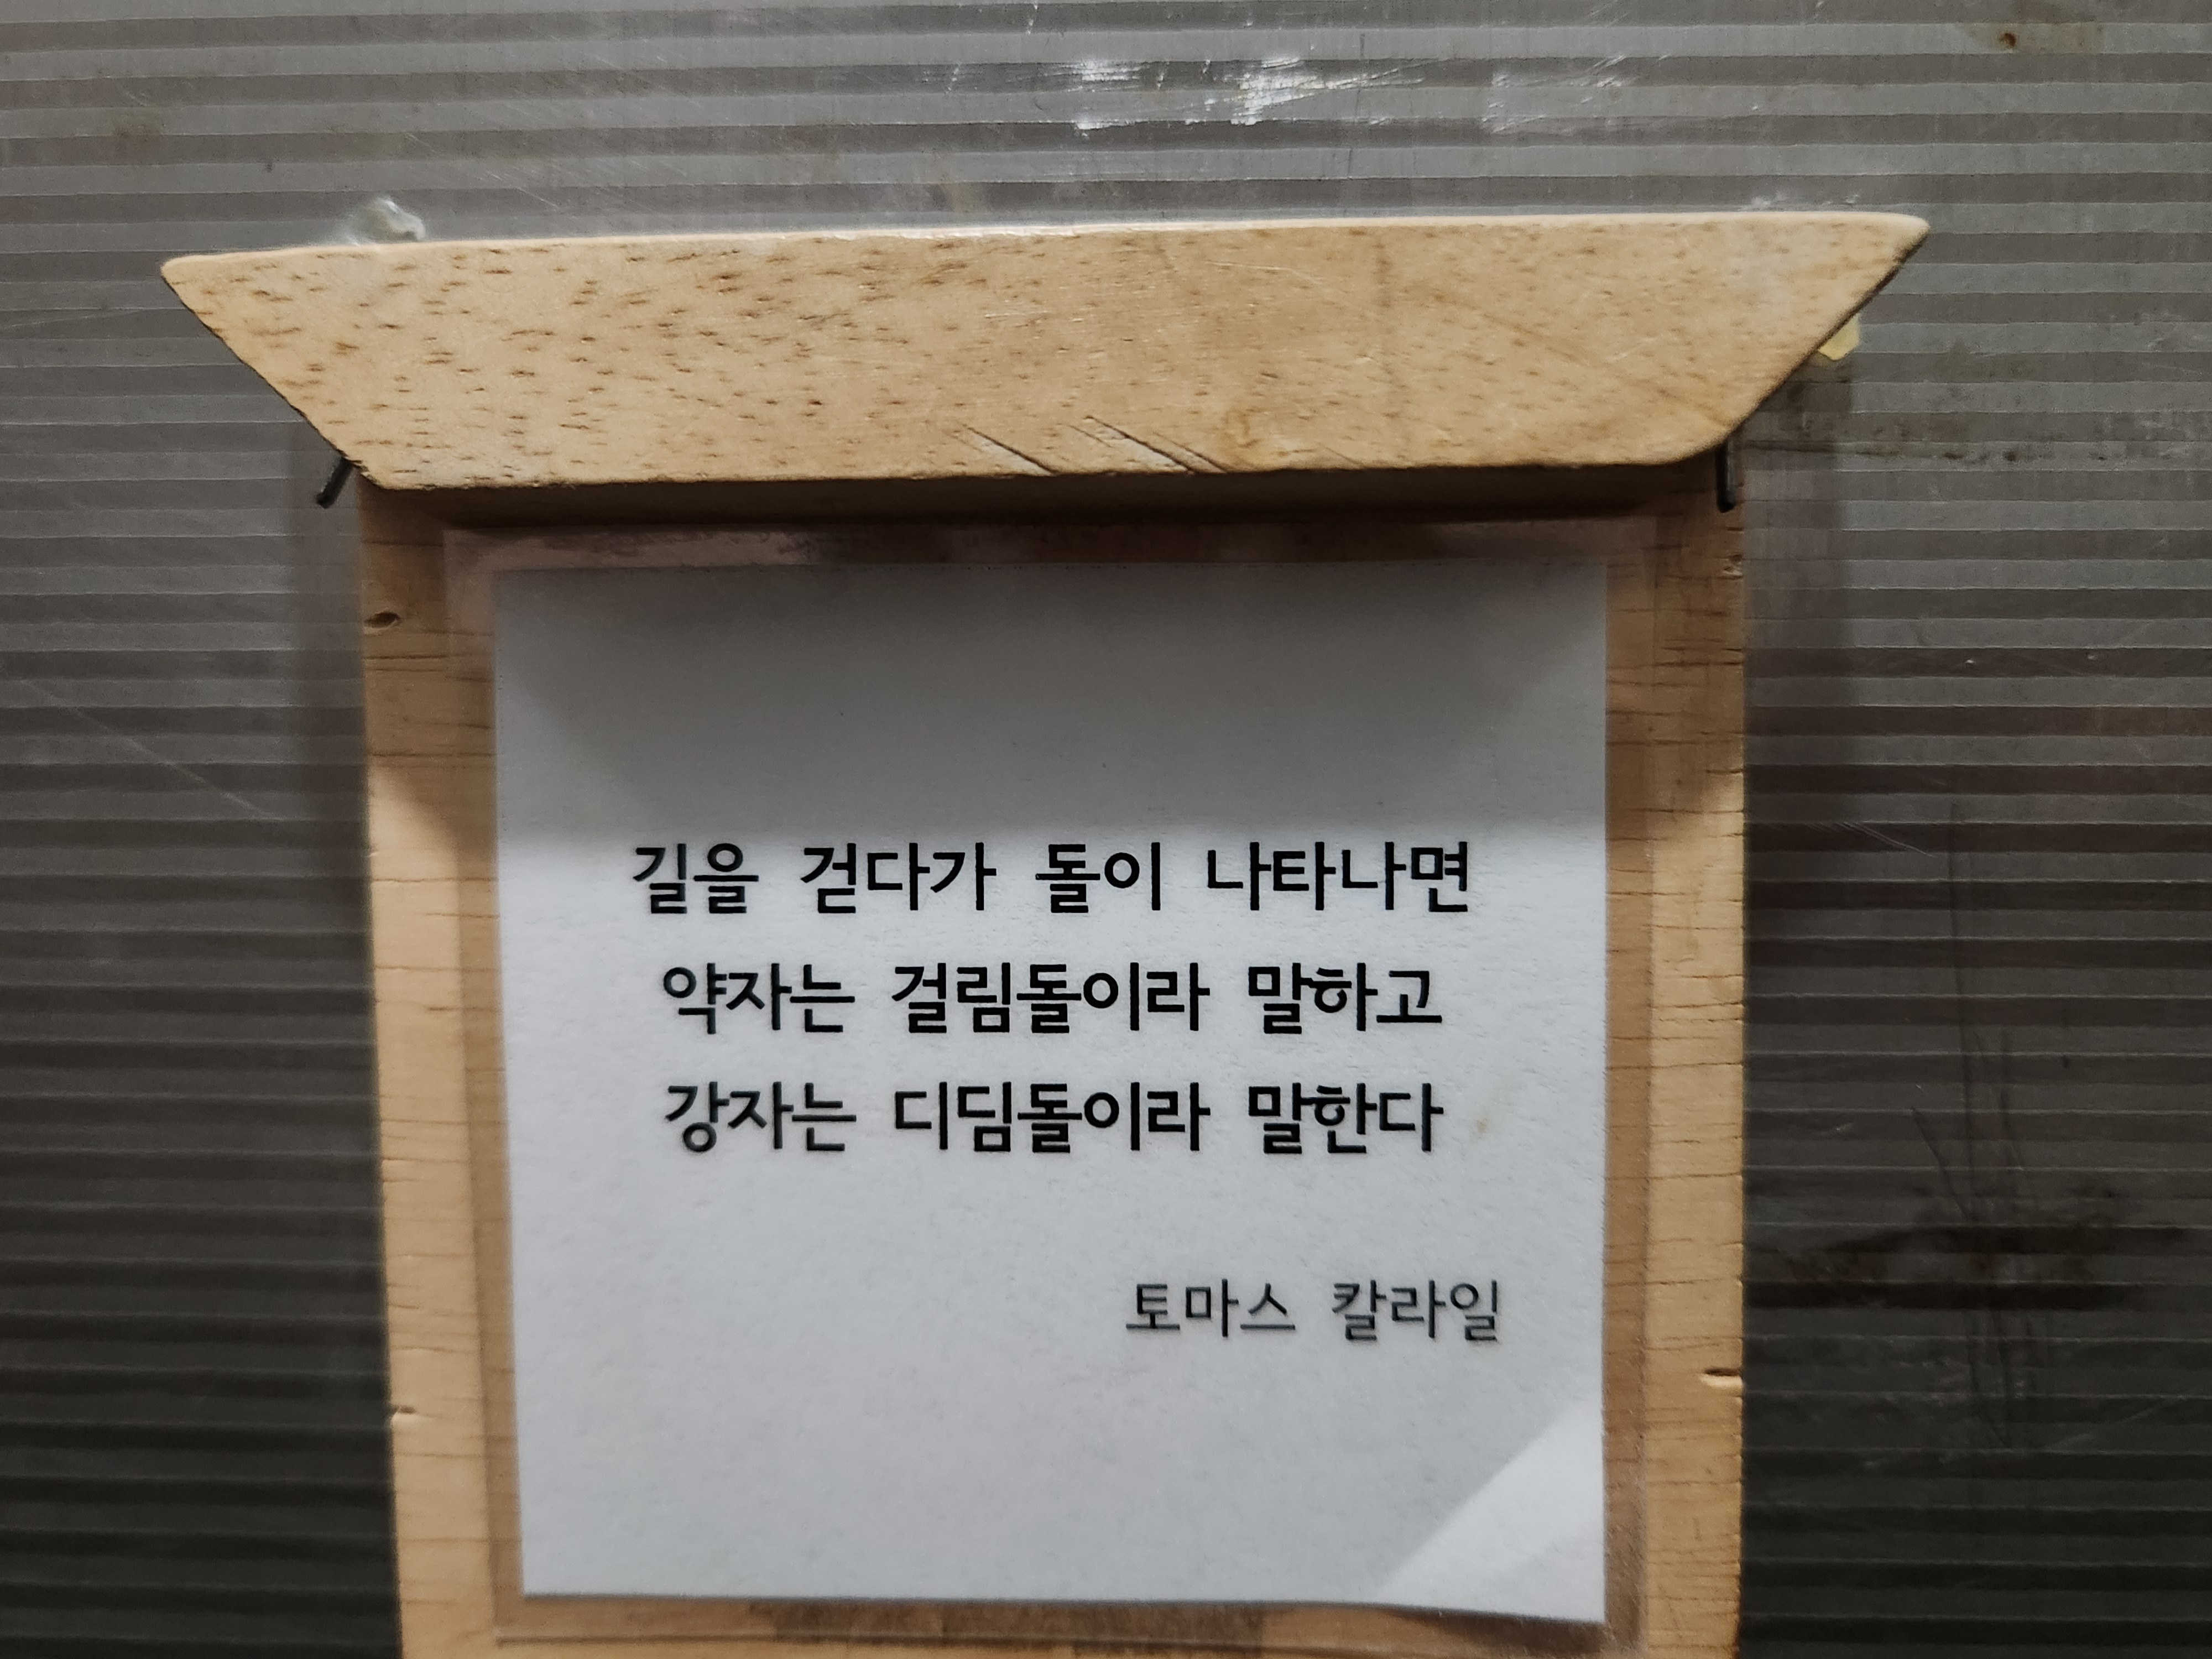 길을 걷다가 돌이 나타나면
약자는 걸림돌이라 말하고
강자는 디딤돌이라 말한다
토마스 칼라일